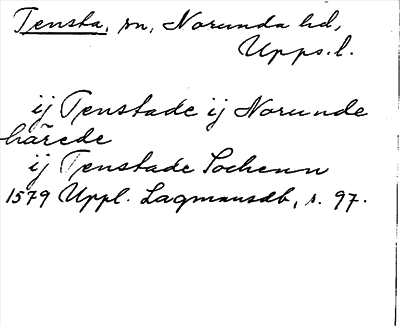 Tensta, sn, Norunda hd,
Upps. l.
ij Tenstade ij Norunde
härede
ij Tenstade Sochenn
1579 Uppl. Lagmansdb, s. 97.